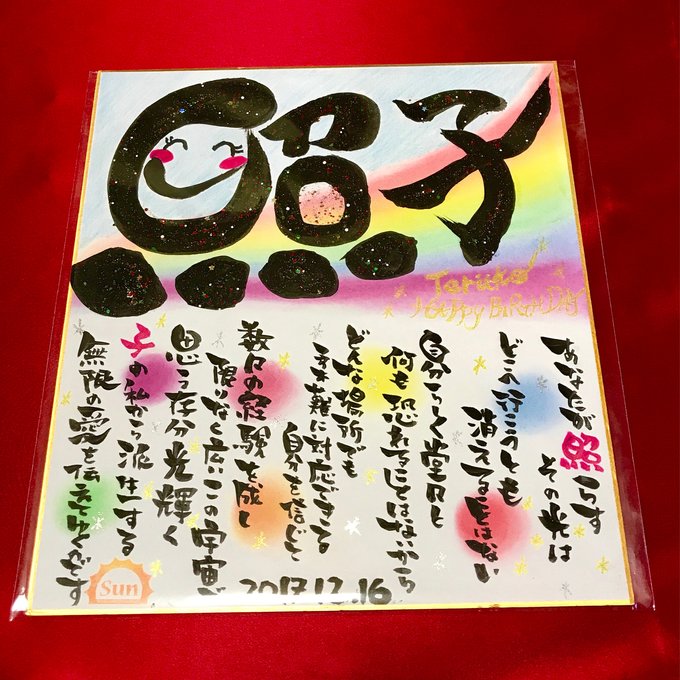 照子
Teruko
HAPPY BIRTHDAY
あなたが照らす
その光は
どこへ行こうとも
消える事はない
自分らしく堂々と
何も恐れることはないから
どんな場所でも
に対応できる
自分を信じて
数々の経験を成し
限りなく広いこの宇宙で
思う存分光輝く
子の私から派生する
無限の愛を伝えてゆくんです
2017.12.16
Sun